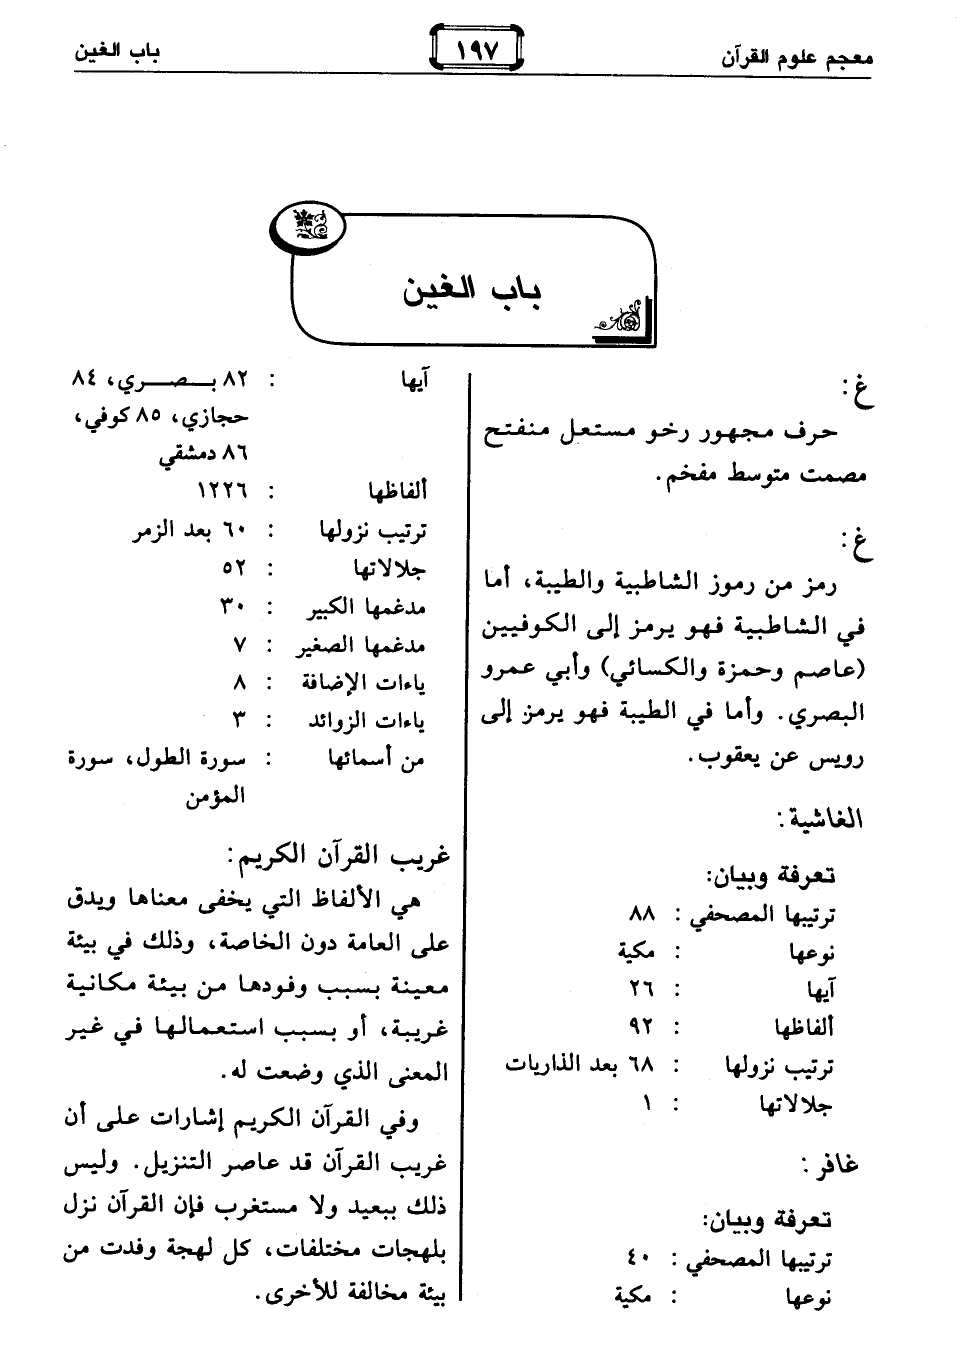 معجم علوم القرآن
١٩٧
باب الغين
باب الغين
غ:
حرف مجهور رخو مستعل منفتح
مصمت متوسط مفخم.
غ:
رمز من رموز الشاطبية والطيبة، أما
في الشاطبية فهو يرمز إلى الكوفيين
(عاصم وحمزة والكسائي) وأبي عمرو
البصري. وأما في الطيبة فهو يرمز إلى
رويس عن يعقوب.
الغاشية:
تعرفة وبيان:
ترتيبها المصحفي : ٨٨
نوعها : مكية
آيها : ٢٦
ألفاظها : ٩٢
ترتيب نزولها : ٦٨ بعد الذاريات
جلالاتها : ١
غافر:
تعرفة وبيان:
ترتيبها المصحفي : ٤٠
نوعها : مكية
آيها : ٨٢ بصري، ٨٤
حجازي، ٨٥ كوفي،
٨٦ دمشقي
ألفاظها : ١٢٢٦
ترتيب نزولها : ٦٠ بعد الزمر
جلالاتها : ٥٢
مدغمها الكبير : ٣٠
مدغمها الصغير : ٧
ياءات الإضافة : ٨
ياءات الزوائد : ٣
من أسمائها : سورة الطول، سورة
المؤمن
غريب القرآن الكريم:
هي الألفاظ التي يخفى معناها ويدق
على العامة دون الخاصة، وذلك في بيئة
معينة بسبب وفودها من بيئة مكانية
غريبة، أو بسبب استعمالها في غير
المعنى الذي وضعت له.
وفي القرآن الكريم إشارات على أن
غريب القرآن قد عاصر التنزيل. وليس
ذلك ببعيد ولا مستغرب فإن القرآن نزل
بلهجات مختلفات، كل لهجة وفدت من
بيئة مخالفة للأخرى.